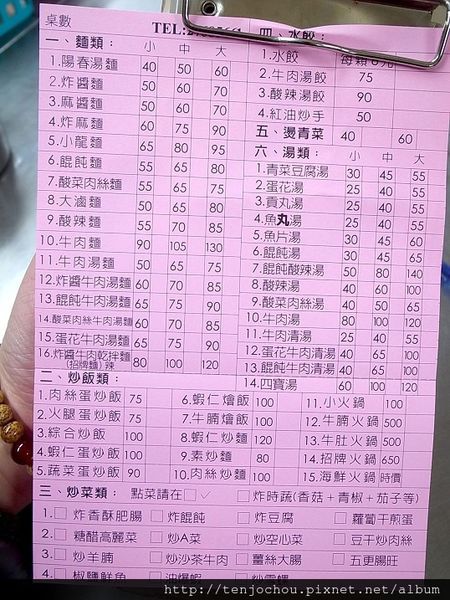 桌數
TEL:2
一、麵類： 小 中 大
1.陽春湯麵 40 50 60
2.炸醬麵 50 60 70
3.麻醬麵 50 60 70
4.炸麻麵 60 75 90
5.小龍麵 65 80 95
6.餛飩麵 55 65 80
7.酸菜肉絲麵 55 65 75
8.大滷麵 50 65 80
9.酸辣麵 55 70 85
10.牛肉麵 90 105 130
11.牛肉湯麵 50 65 75
12.炸醬牛肉湯麵 60 70 85
13.餛飩牛肉湯麵 65 75 90
14.酸菜肉絲牛肉湯麵 60 70 85
15.蛋花牛肉湯麵 65 75 90
16.炸醬牛肉乾拌麵 80 100 120
(招牌麵)辣
四、水餃：
1.水餃 每顆 元
2.牛肉湯餃 75
3.酸辣湯餃 90
4.紅油炒手 50
五、燙青菜 40 60
六、湯類： 小 中 大
1.青菜豆腐湯 30 45 55
2.蛋花湯 25 45 55
3.貢丸湯 25 40 55
4.魚丸湯 25 40 55
5.魚片湯 30 45 60
6.餛飩湯 30 45 65
7.餛飩酸辣湯 50 80 140
8.酸辣湯 40 60 100
9.酸菜肉絲湯 40 50 65
10.牛肉湯 80 100 120
11.牛肉清湯 25 40 55
12.蛋花牛肉清湯 40 65 100
13.餛飩牛肉清湯 40 65 100
14.四寶湯 60 100 120
二、炒飯類：
1.肉絲蛋炒飯 75
2.火腿蛋炒飯 75
3.綜合炒飯 100
4.蝦仁蛋炒飯 100
5.蔬菜蛋炒飯 90
6.蝦仁燴飯 100
7.牛腩燴飯 100
8.蝦仁炒麵 120
9.素炒麵 80
10.肉絲炒麵 100
11.小火鍋 100
12.牛腩火鍋 500
13.牛肚火鍋 500
14.招牌火鍋 650
15.海鮮火鍋 時價
三、炒菜類： 點菜請在□✓ □炸時蔬(香菇+青椒+茄子等)
1.□炸香酥肥腸 □炸餛飩 □炸豆腐 □蘿蔔干煎蛋
2.□糖醋高麗菜 □炒A菜 □炒空心菜 □豆干炒肉絲
3.□炒羊腩 □炒沙茶牛肉 □薑絲大腸 □五更腸旺
4.□椒鹽鮮魚 □油爆蝦
http://tenjochou.pixnet.net/album